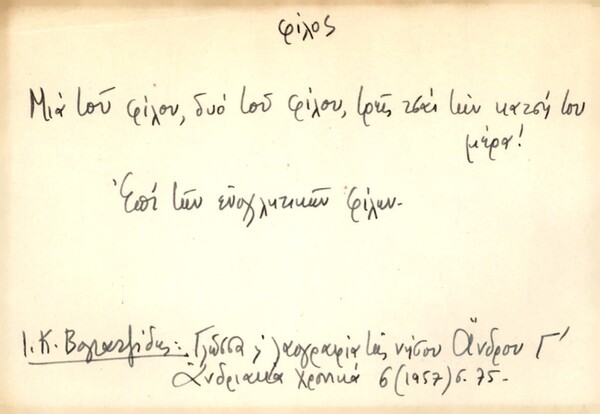 φίλος
Μιὰ τοῦ φίλου, δυὸ τοῦ φίλου, τρεῖς τσαὶ τὴν κατσή του
μέρα!
Ἐπὶ τῶν ἐνοχλητικῶν φίλων.
Ι. Κ. Βογιατζίδης: Γλῶσσα & λαογραφία τῆς νήσου Ἄνδρου Γ'
Ἀνδριακὰ Χρονικὰ 6 (1957) σ. 75.